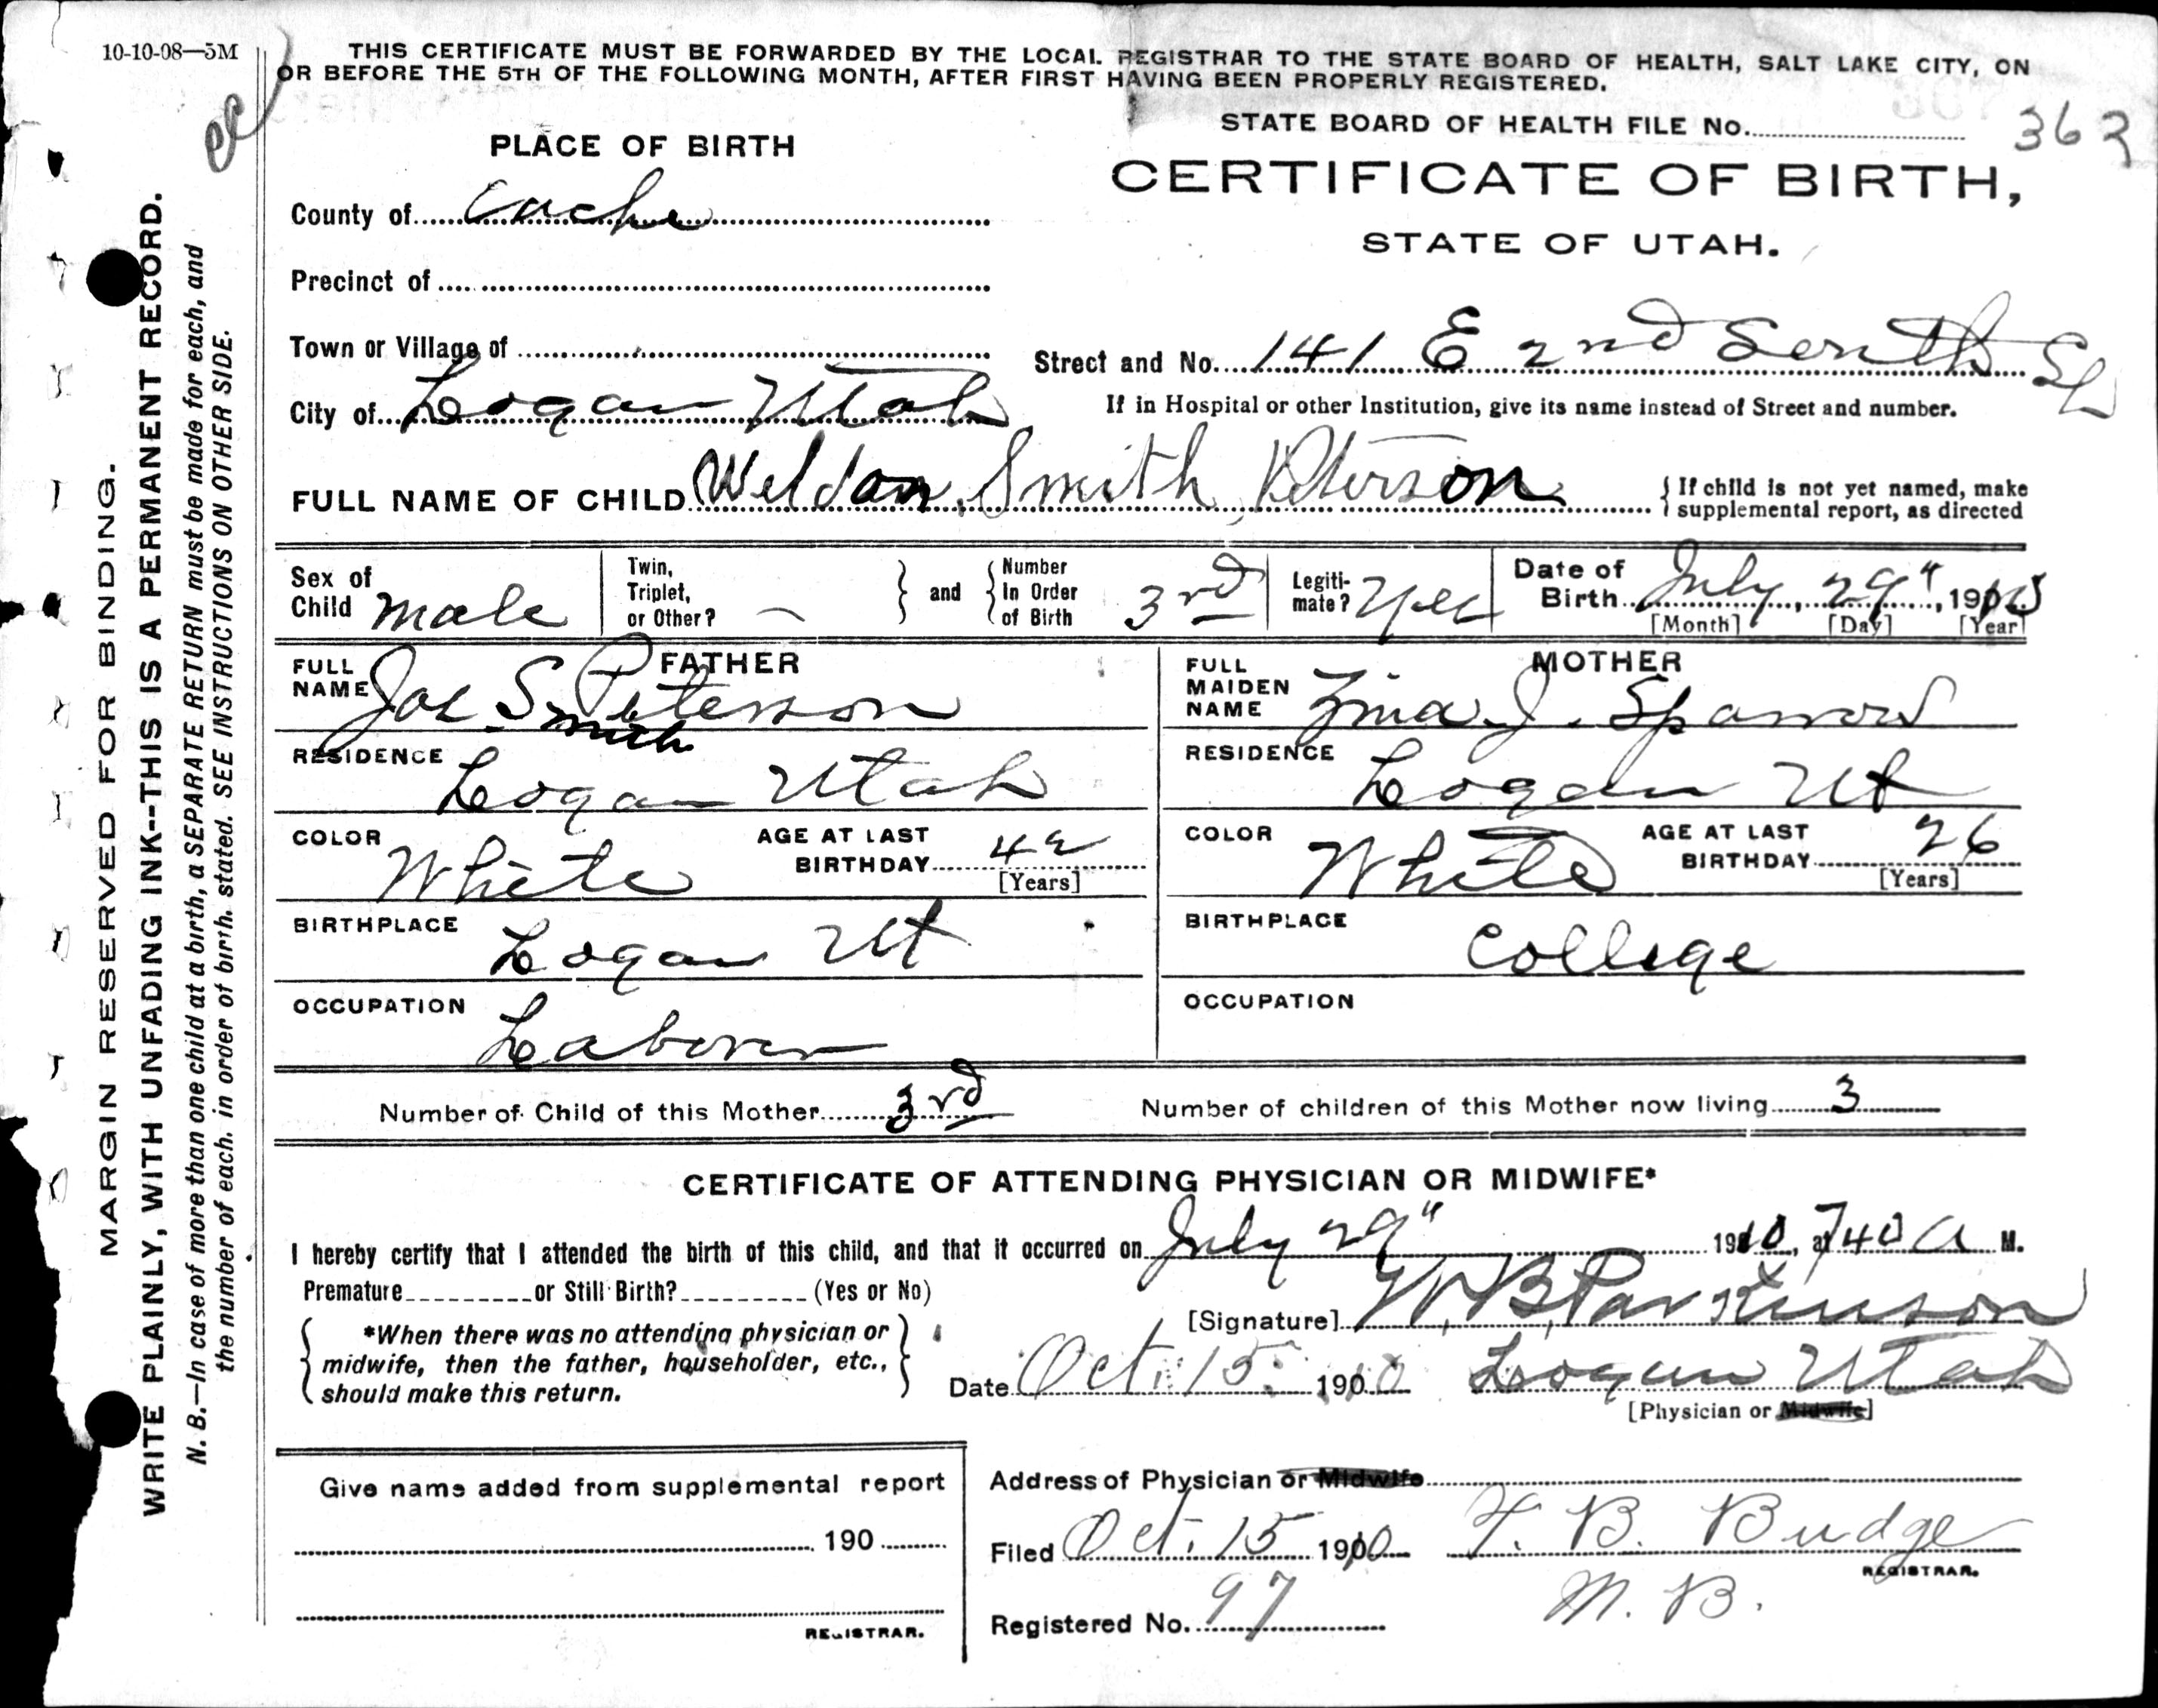 10-10-08—5M
THIS CERTIFICATE MUST BE FORWARDED BY THE LOCAL REGISTRAR TO THE STATE BOARD OF HEALTH, SALT LAKE CITY, ON
OR BEFORE THE 5TH OF THE FOLLOWING MONTH, AFTER FIRST HAVING BEEN PROPERLY REGISTERED.
STATE BOARD OF HEALTH FILE No. 362
PLACE OF BIRTH
CERTIFICATE OF BIRTH,
STATE OF UTAH.
County of Cache
Precinct of
Town or Village of
Street and No. 141 E 2nd South St
City of Logan Utah
If in Hospital or other Institution, give its name instead of Street and number.
FULL NAME OF CHILD Weldon Smith Peterson
{ If child is not yet named, make
supplemental report, as directed
Sex of Child male
Twin, Triplet, or Other? —
} and { Number In Order of Birth 3rd
Legitimate? Yes
Date of Birth July 29", 1910
[Month] [Day] [Year]
FATHER
FULL NAME Joe S Peterson
Smith
RESIDENCE Logan Utah
COLOR White
AGE AT LAST BIRTHDAY 42
[Years]
BIRTHPLACE Logan Ut
OCCUPATION Laborer
MOTHER
FULL MAIDEN NAME Zina J. Sparrow
RESIDENCE Logan Ut
COLOR White
AGE AT LAST BIRTHDAY 26
[Years]
BIRTHPLACE College
OCCUPATION
Number of Child of this Mother 3rd
Number of children of this Mother now living 3
CERTIFICATE OF ATTENDING PHYSICIAN OR MIDWIFE*
I hereby certify that I attended the birth of this child, and that it occurred on July 29" 1910, at 740 A M.
Premature or Still Birth? (Yes or No)
[Signature] W. B. Parkinson
{ *When there was no attending physician or
midwife, then the father, householder, etc.,
should make this return. }
Date Oct. 15 1900 Logan Utah
[Physician or Midwife]
Give name added from supplemental report
190
REGISTRAR.
Address of Physician or Midwife
Filed Oct. 15 1910 T. B. Budge
REGISTRAR.
M. B.
Registered No. 97
MARGIN RESERVED FOR BINDING.
WRITE PLAINLY, WITH UNFADING INK--THIS IS A PERMANENT RECORD.
N. B.—In case of more than one child at a birth, a SEPARATE RETURN must be made for each, and
the number of each, in order of birth, stated. SEE INSTRUCTIONS ON OTHER SIDE.